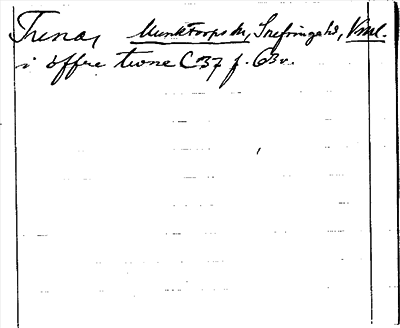 Trena, Munktorps sn, Snefringe hd, Vml.
i öffre trene C 37 f. 63v.